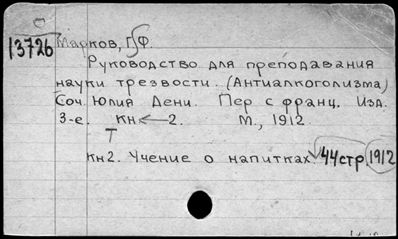 13726 Марков, Г.Ф.
Руководство для преподавания
науки трезвости. (Антиалкоголизма)
Соч. Юлия Дени. Пер с франц. Изд.
3-е. Кн. 2. М., 1912.
Т
Кн2. Учение о напитках. 44стр 1912